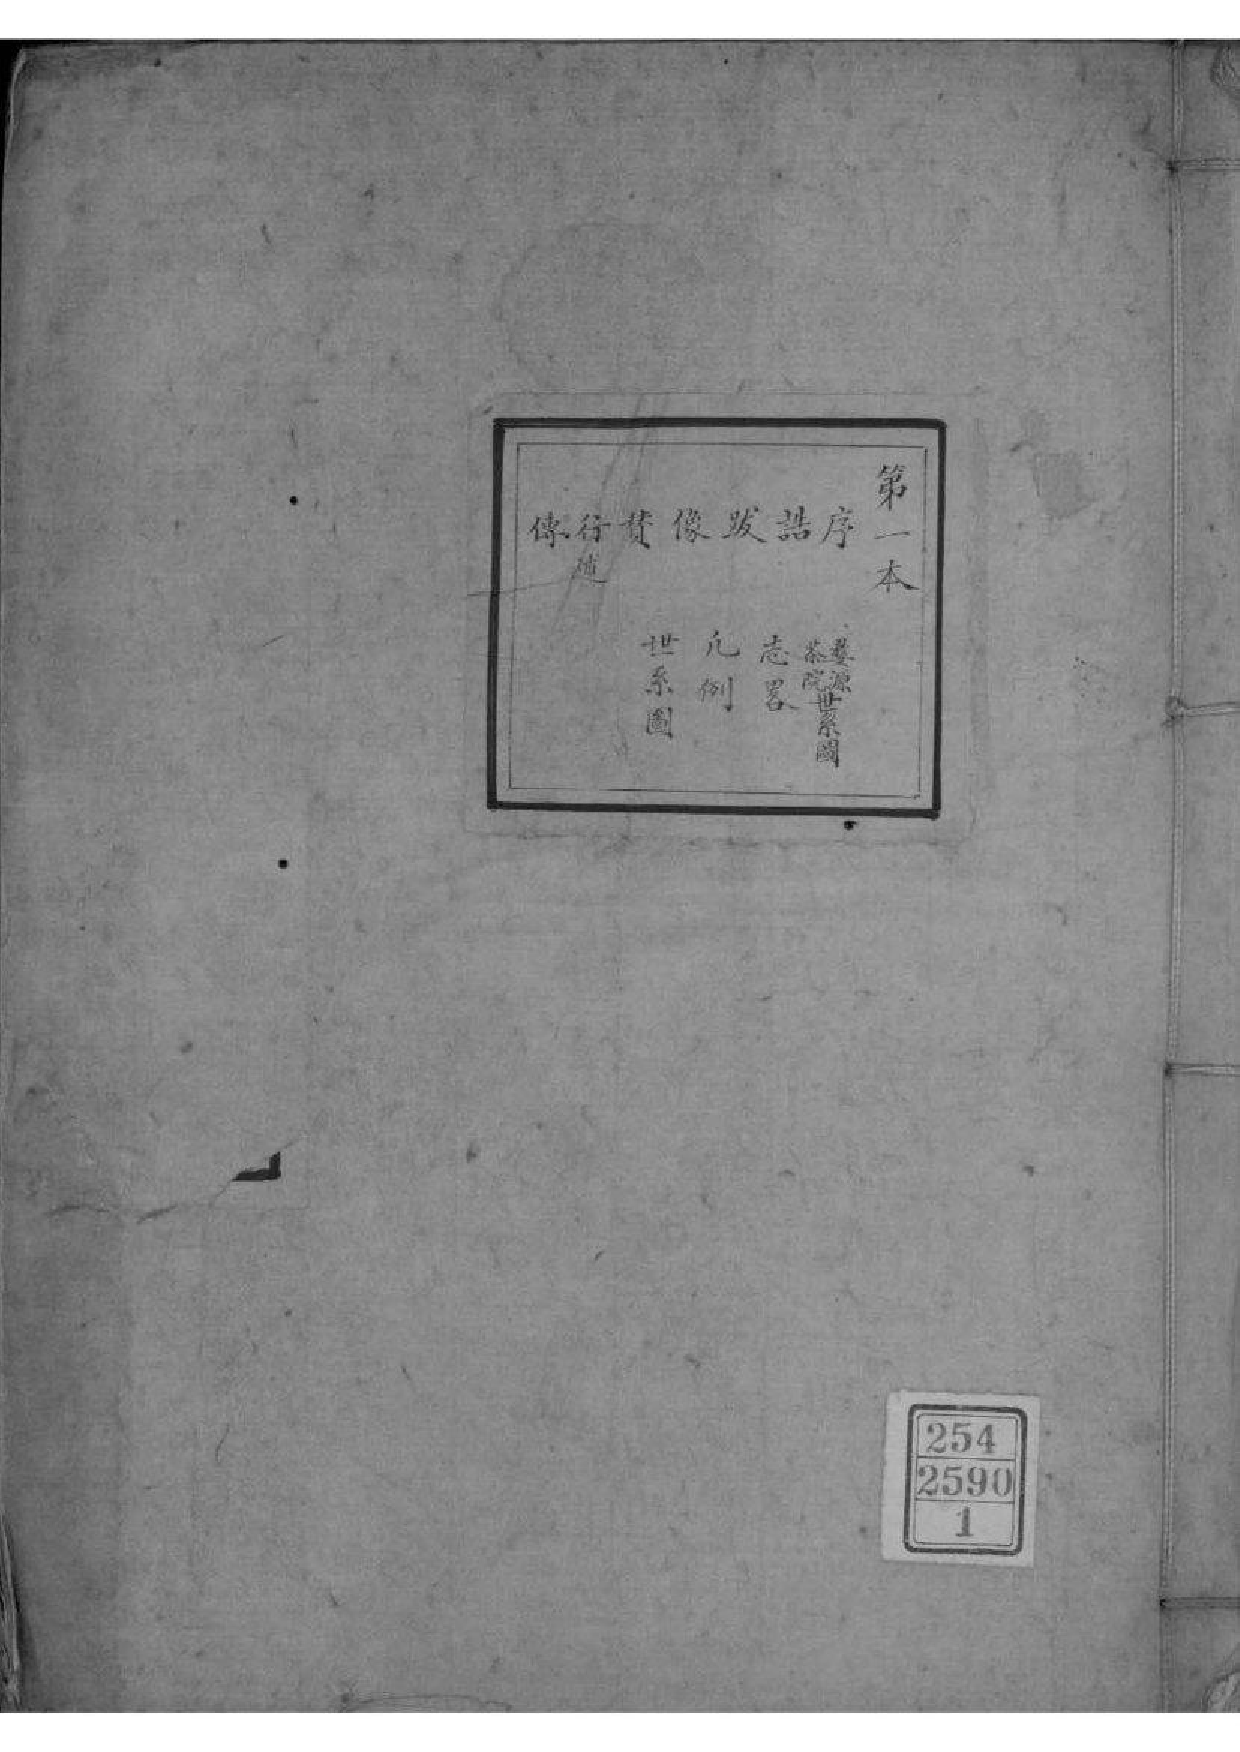 第一本
序
誥
跋
像
賛
行述
傳
婺源
茶院
世系圖
志畧
凡例
世系圖
254
2590
1